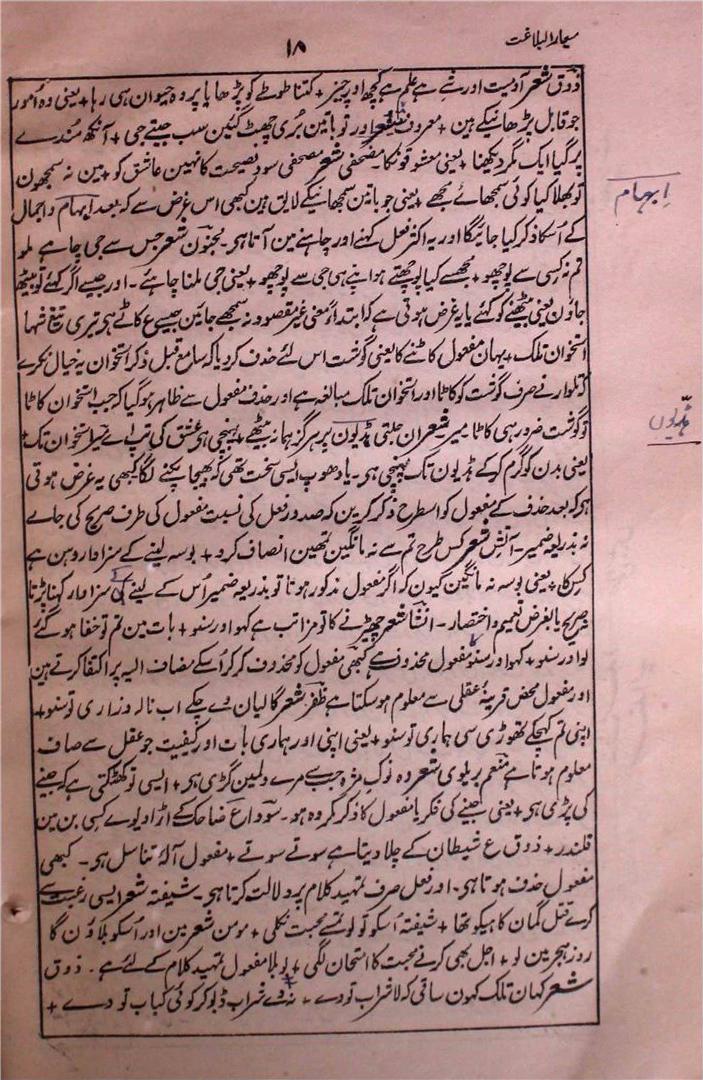 معیار البلاغت
۱۸
ذوق شعر آدمیت اور شے ہے علم ہے کچھ اور چیز + کتنا طوطے کو پڑھایا پر وہ حیوان ہی رہا + یعنی وہ امور
جو قابل پڑھانیکے ہین + معروف شعر اور تو باتین بُری چھٹ گئین سب جیتے جی + آنکھ مُندے
پر گیا ایک مگر دیکھنا + یعنی معشوقونکا۔ مصحفی شعر مصحفی سود نصیحت کا نہین عاشق کو + مین نہ سمجھون
تو بھلا کیا کوئی سمجھائے مجھے + یعنی جو باتین سمجھانیکے لایق ہین کبھی اس غرض سے کہ بعد ابہام و اجمال
ابہام
کے اُسکا ذکر کیا جائیگا اور یہ اکثر فعل کہنے اور چاہنے مین آتا ہی۔ مجنون شعر جس سے جی چاہے ملو
تم نہ کسی سے پوچھو + مجھسے کیا پوچھتے ہو اپنے ہی جی سے پوچھو + یعنی جی ملنا چاہے۔ اور جیسے اگر کہئے تو بیٹھ
جاؤن یعنی بیٹھنے کو کہئے یا یہ غرض ہوتی ہے کہ ابتداءً معنی غیر مقصود نہ سمجھے جائین جیسے ع کاٹے ہی تیری تیغ شہا
استخوان تلک + یہان مفعول کاٹنے کا یعنی گوشت اس لئے حذف کر دیا کہ سامع قبل ذکر استخوان یہ خیال نکرے
کہ تلوار نے صرف گوشت کو کاٹا اور استخوان تلک مبالغہ ہے اور حذف مفعول سے ظاہر ہو گیا کہ جب استخوان کاٹا
تو گوشت ضرور ہی کاٹا میر شعر ان جلتی ہڈیون پر ہرگز ہما نہ بیٹھے + پہنچی ہی عشق کی تپ اے میر استخوان تک +
ہڈیوں
یعنی بدن کو گرم کر کے ہڈیون تک پہنچی ہی۔ یا دھوپ ایسی سخت تھی کہ بھیجا پکنے لگا کبھی یہ غرض ہوتی
ہی کہ بعد حذف کے مفعول کو اسطرح ذکر کرین کہ صدور فعل کی نسبت مفعول کی طرف صریح کی جاے
نہ بذریعہ ضمیر۔ آتش شعر کس طرح تم سے نہ مانگین تمھین انصاف کرو + بوسہ لینے کے سزاوار دہن ہے
کس کا + یعنی بوسہ نہ مانگین کیون کہ اگر مفعول مذکور ہوتا تو بذریعہ ضمیر اُس کے لینے کے سزاوار کہنا پڑتا
صریح یا بغرض تعمیم و اختصار۔ انشا شعر چھیڑنے کا تو مزا تب ہے کہو اور سنو + بات مین تم تو خفا ہو گئے
لو اور سنو + کہو اور سنو مفعول محذوف ہے کبھی مفعول کو محذوف کر کر اُسکے مضاف الیہ پر اکتفا کرتے ہین
اور مفعول محض قرینۂ عقلی سے معلوم ہو سکتا ہے ظفر شعر گالیان دے چکے اب نالہ و زاری تو سنو +
اپنی تم کہچکے تھوڑی سی ہماری تو سنو + یعنی اپنی اور ہماری بات اور کیفیت جو عقل سے صاف
معلوم ہوتا ہے منعم بریلوی شعر وہ نوک مژہ جب سے مرے دلمین گڑی ہی + ایسی تو کھٹکتی ہے کہ جینے
کی پڑی ہی + یعنی جینے کی فکر یا مفعول کا ذکر مکروہ ہو۔ سودا ع ضاحک کے اڑا دیوے کسی بن مین
قلندر + ذوق ع شیطان کے چلا دیتا ہے سوتے سوتے + مفعول آلۂ تناسل ہی۔ کبھی
مفعول حذف ہوتا ہی۔ اور فعل صرف تمہید کلام پر دلالت کرتا ہی۔ شیفتہ شعر ایسی رغبت سے
کرے قتل گمان کا ہیکو تھا + شیفتہ اُسکو تو لو تجھسے محبت نکلی + مومن شعر مین اور اُسکو بلاؤن گا
روز ہجر مین لو + اجل بھی کرنے محبت کا امتحان لگی + لو بلا مفعول تمہید کلام کے لئے ہے۔ ذوق
شعر کہان تلک کہون ساقی کہ لا شراب تو دے + نہ دے شراب ڈبو کر کوئی کباب تو دے +